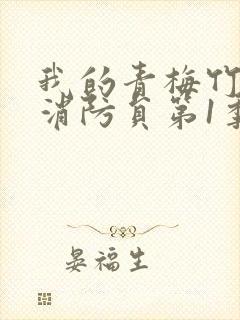 我的青梅竹
消防员第1季
晏福生